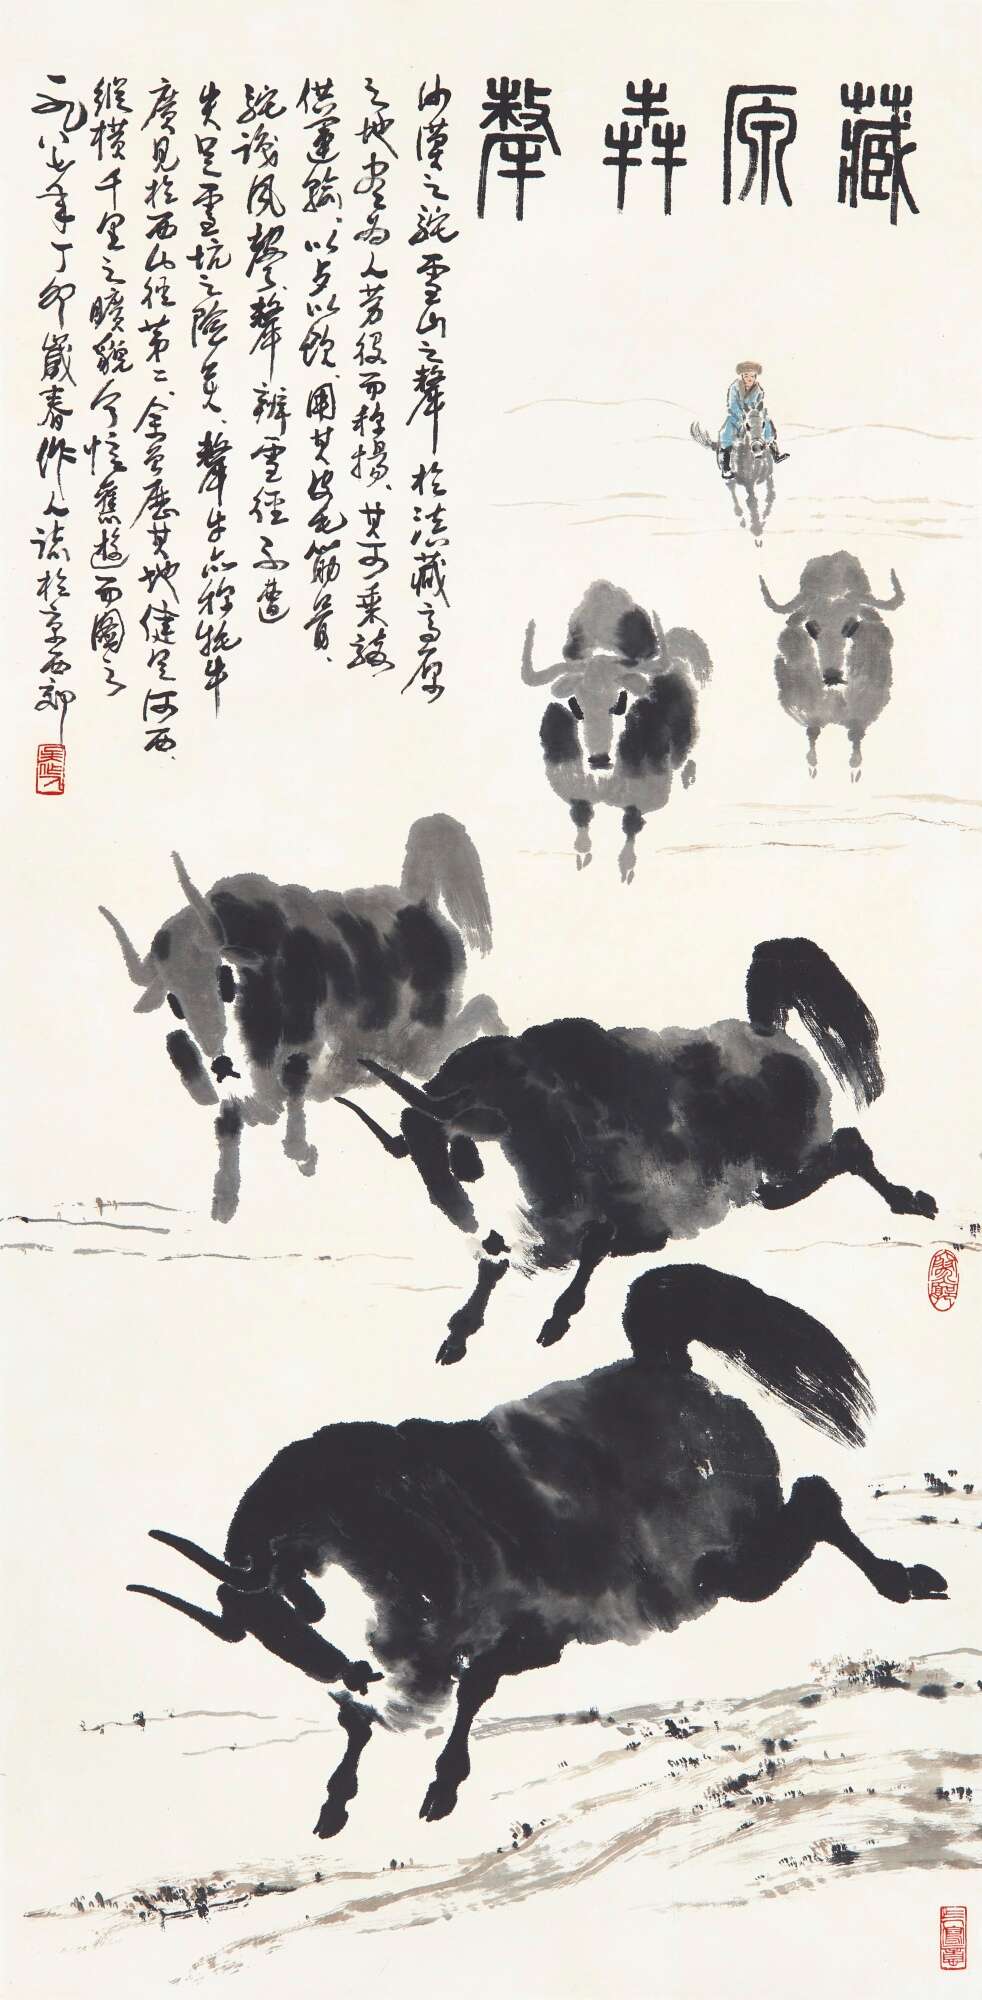 藏原犇犛
沙漠之駝雪山之犛於滇藏高原
之地盡為人勞役而稱揚其可乘騎
供運輸以至以飲用其皮毛筋骨
駝識風聲犛辨雪徑不遭
失足雪坑之險矣犛牛亦稱牦牛
廣見於西山經第二余曾歷其地健足河西
縱橫千里之曠貌今憶舊遊而圖之
一九八七年丁卯歲春作人誌於京西郊
吳作人